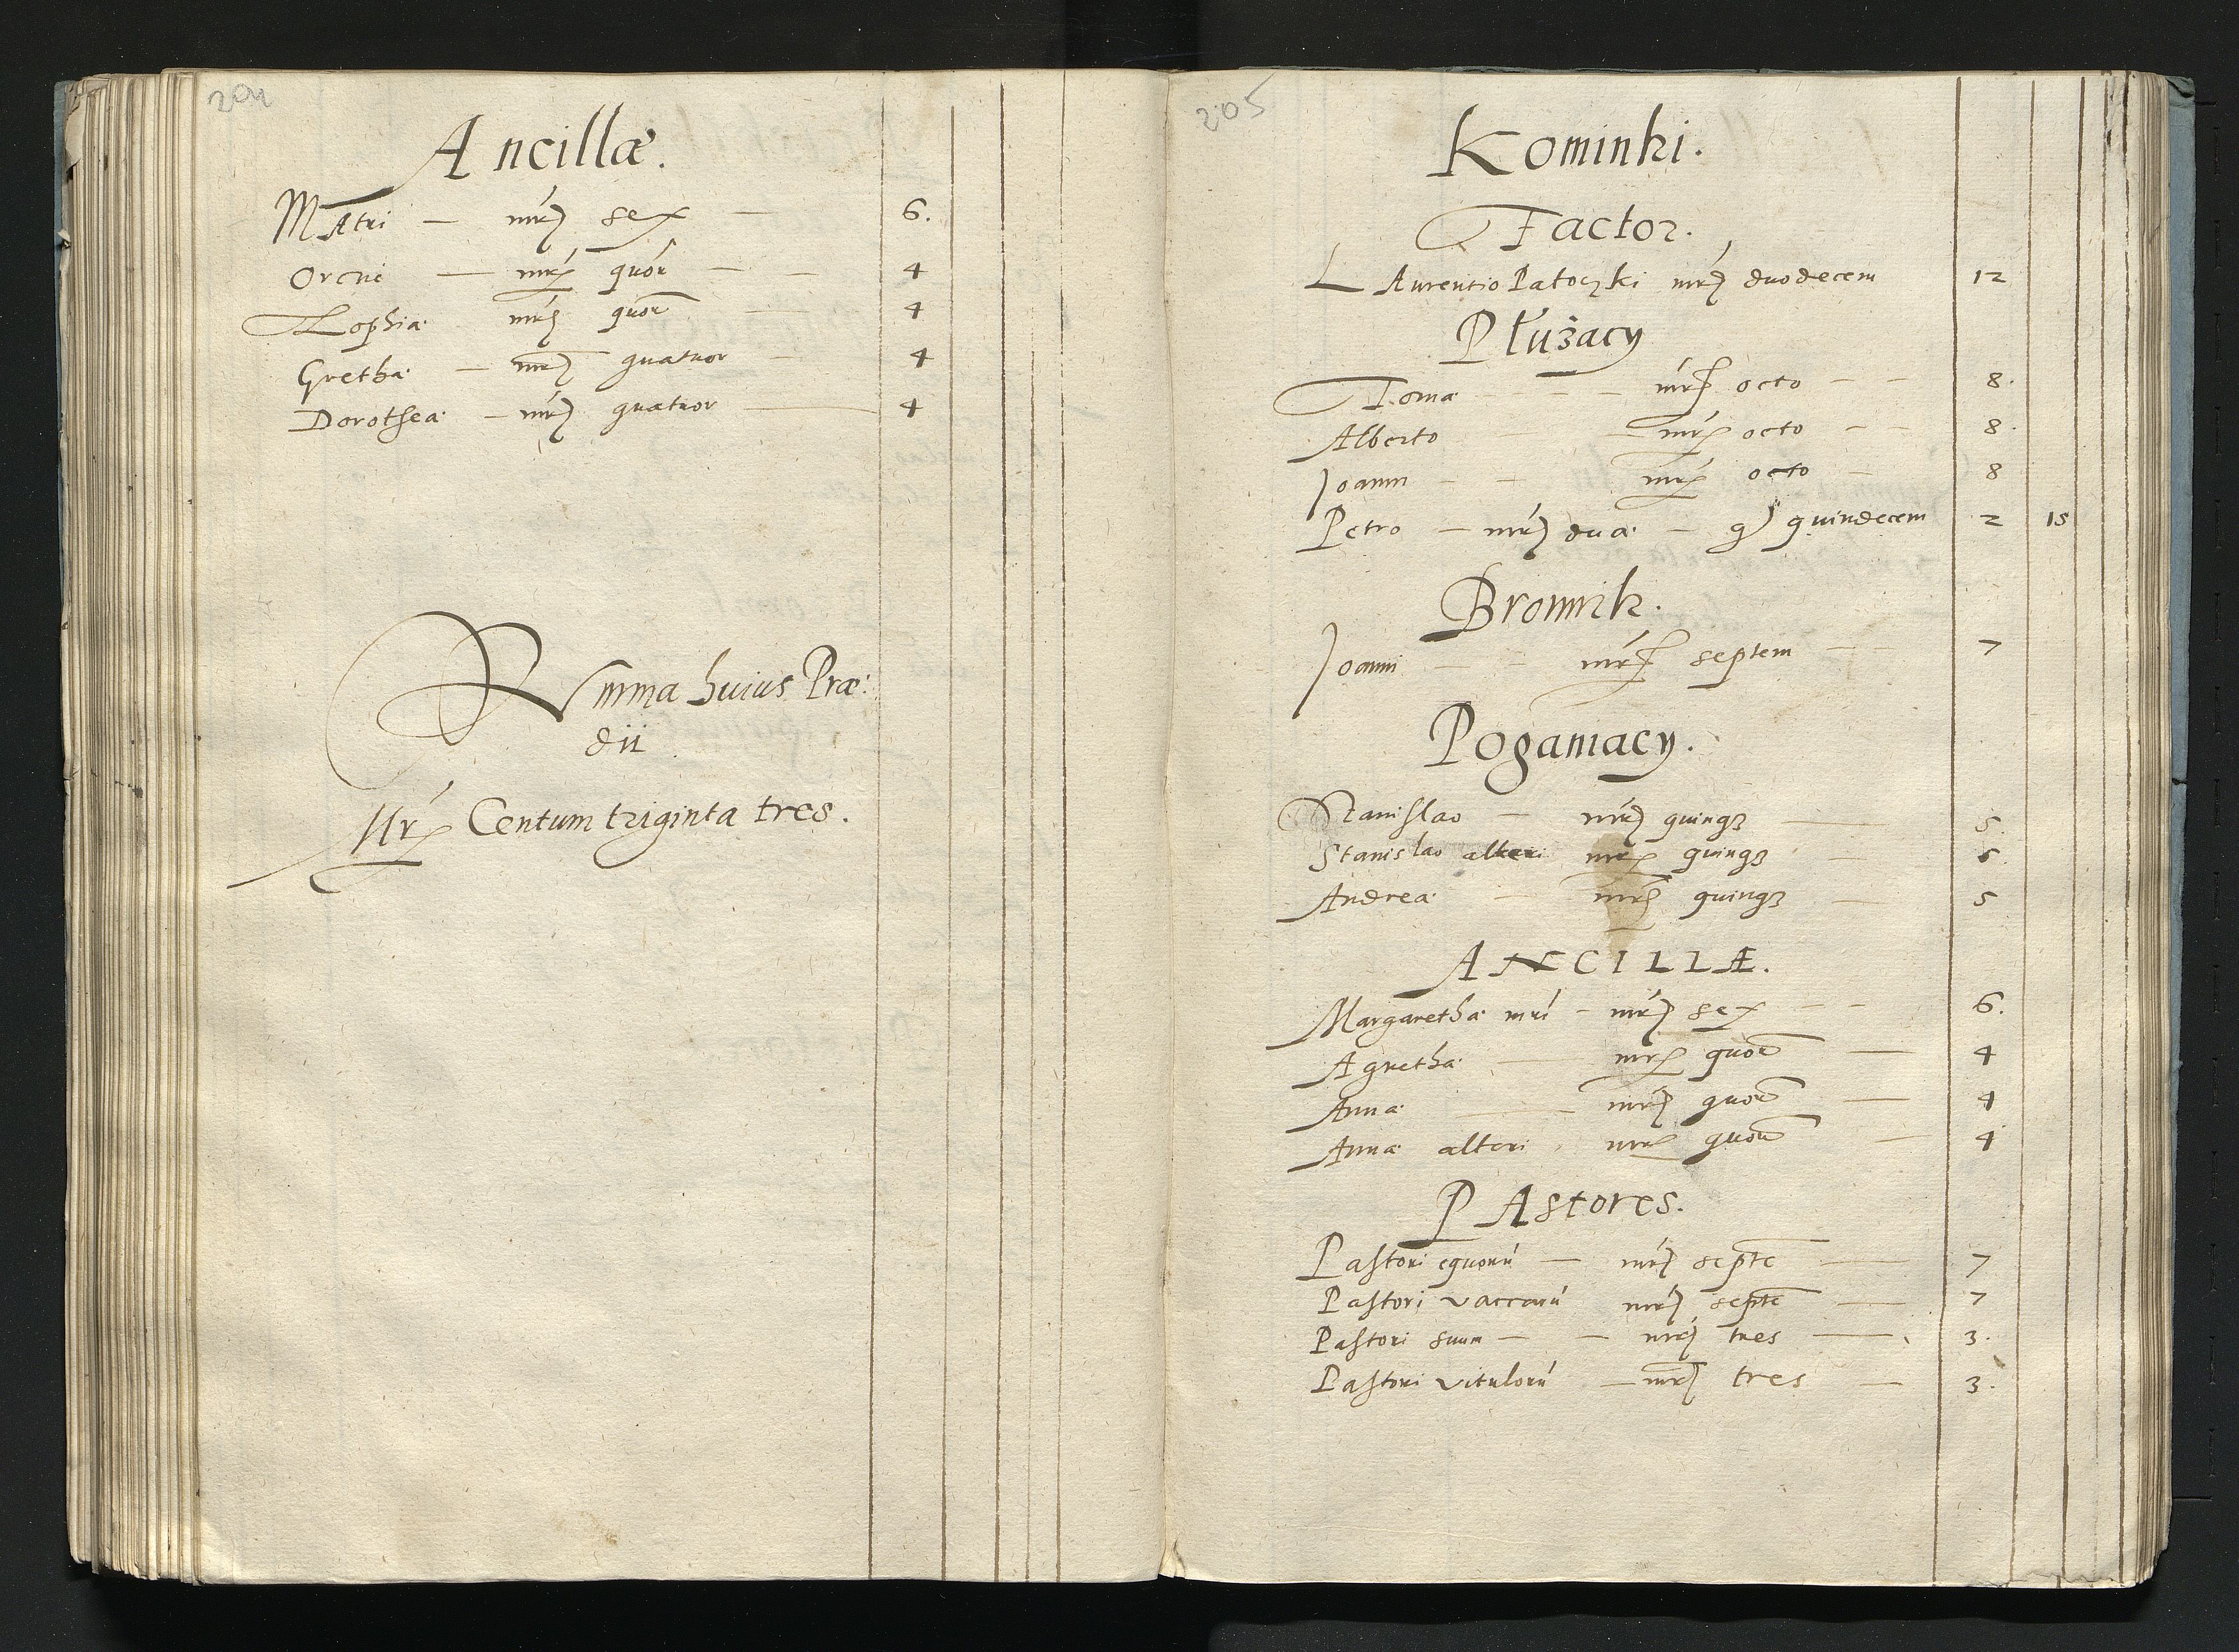 204
Ancillæ.
MAtri — mrc sex — 6.
Orcne — mrc quor — — 4
Zophia — mrc quor — 4
Gretha — mrc quatuor — 4
Dorothea — mrc quatuor — 4
Summa huius Præ:
dii
Mrc Centum triginta tres.
205
Kominki.
Factor.
LAurentio Patoczki mrc duodecem 12
Płużacy
Toma — — — mrc octo — — 8.
Alberto — — mrc octo — — 8.
Joanni — — mrc octo — 8
Petro — mrc dua — g quindecem 2 15
Bronnik.
Joanni — — mrc septem — — 7
Poganiacy.
Stanislao — mrc quinqз — 5.
Stanislao alteri mrc quinqз — 5.
Andrea — mrc quinqз — 5
ANCILLÆ.
Margaretha mri — mrc sex — — 6.
Agnetha — mrc quor — 4
Anna — — mrc quor — 4
Anna alteri mrc quor — 4
PAstores.
Pastori equorú — mrc septē — 7
Pastori vaccarú mrc septē — 7
Pastori suum — — mrc tres — 3.
Pastori vitulorú — mrc tres — 3.